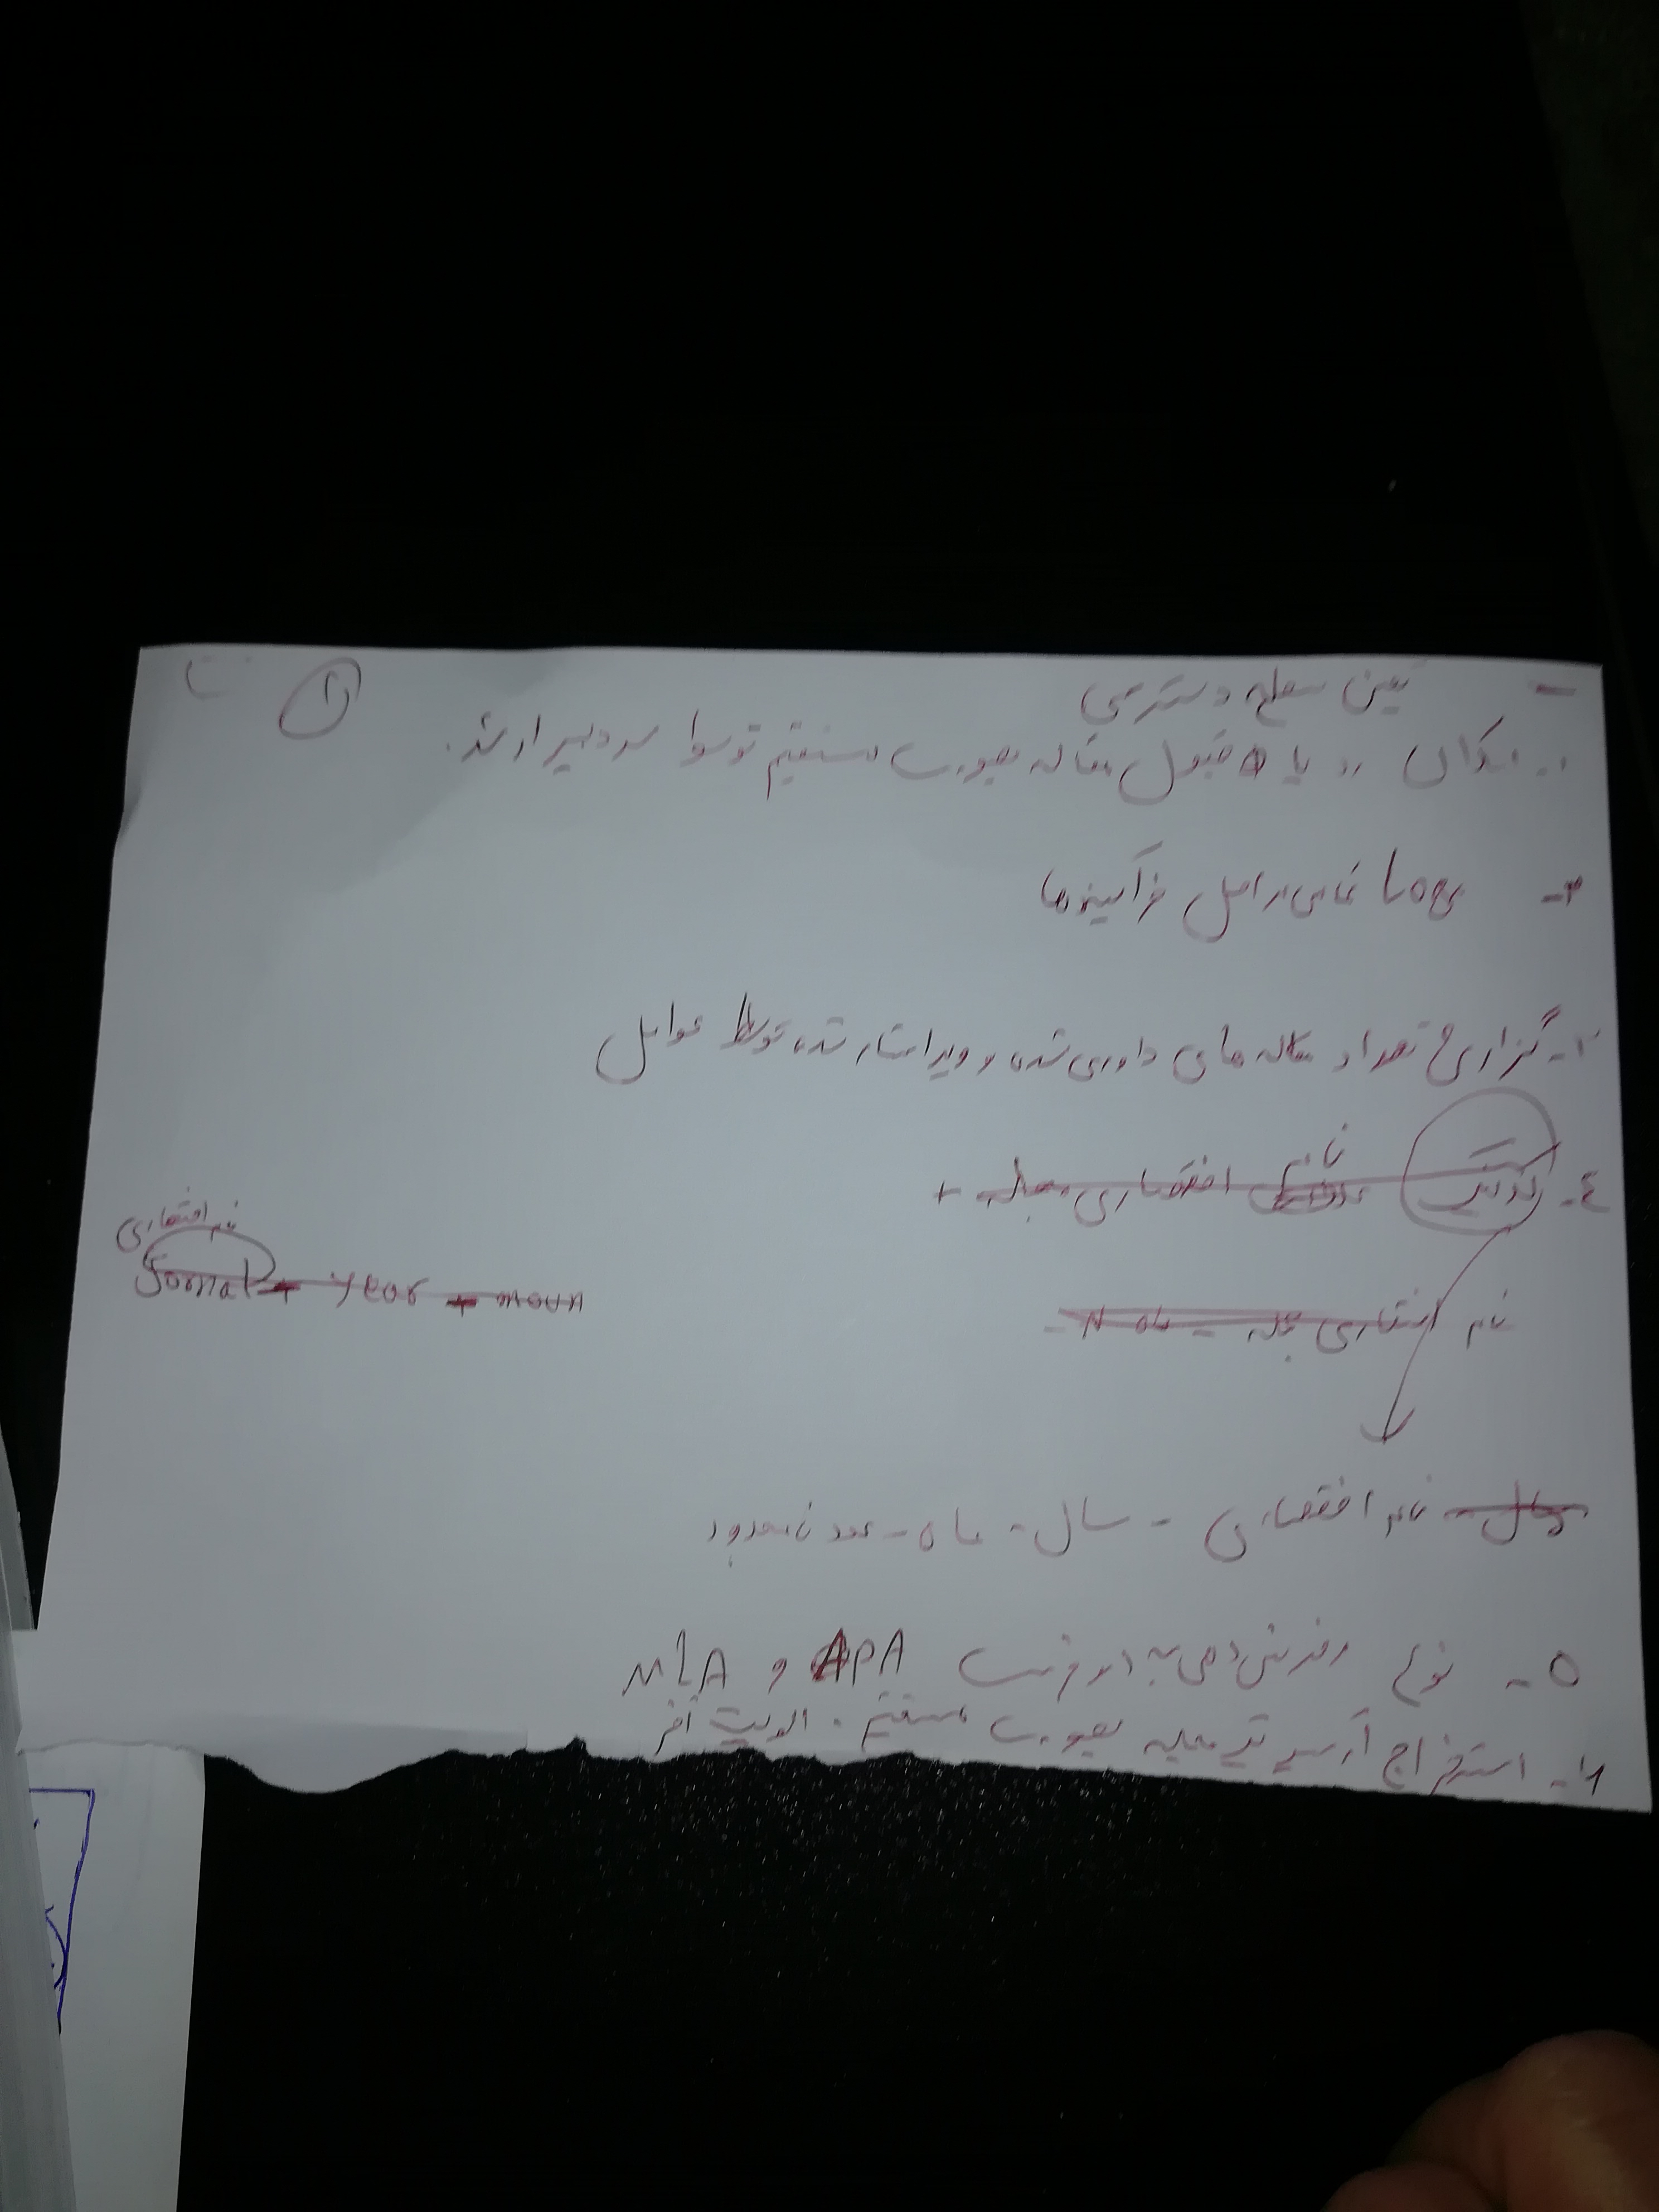 - تعیین سطح دسترسی
①
۱- امکان رد یا قبول مقاله بصورت مستقیم توسط سردبیر ارشد.
۲- تمامی مراحل فرآیندها
۳- گزارش تعداد مقاله های داوری شده و ویراستار شده توسط عوامل
٤- کدینگ نام اختصاری مجله +
نام اختصاری
Jornal + year + moun
نام اختصاری مجله - ماه
نام اختصاری - سال - ماه - عدد نامحدود
۵- نوع رفرنس دهی به دو فرمت APA و MLA
۶- استخراج آرشیو مجله بصورت مستقیم. الویت آخر